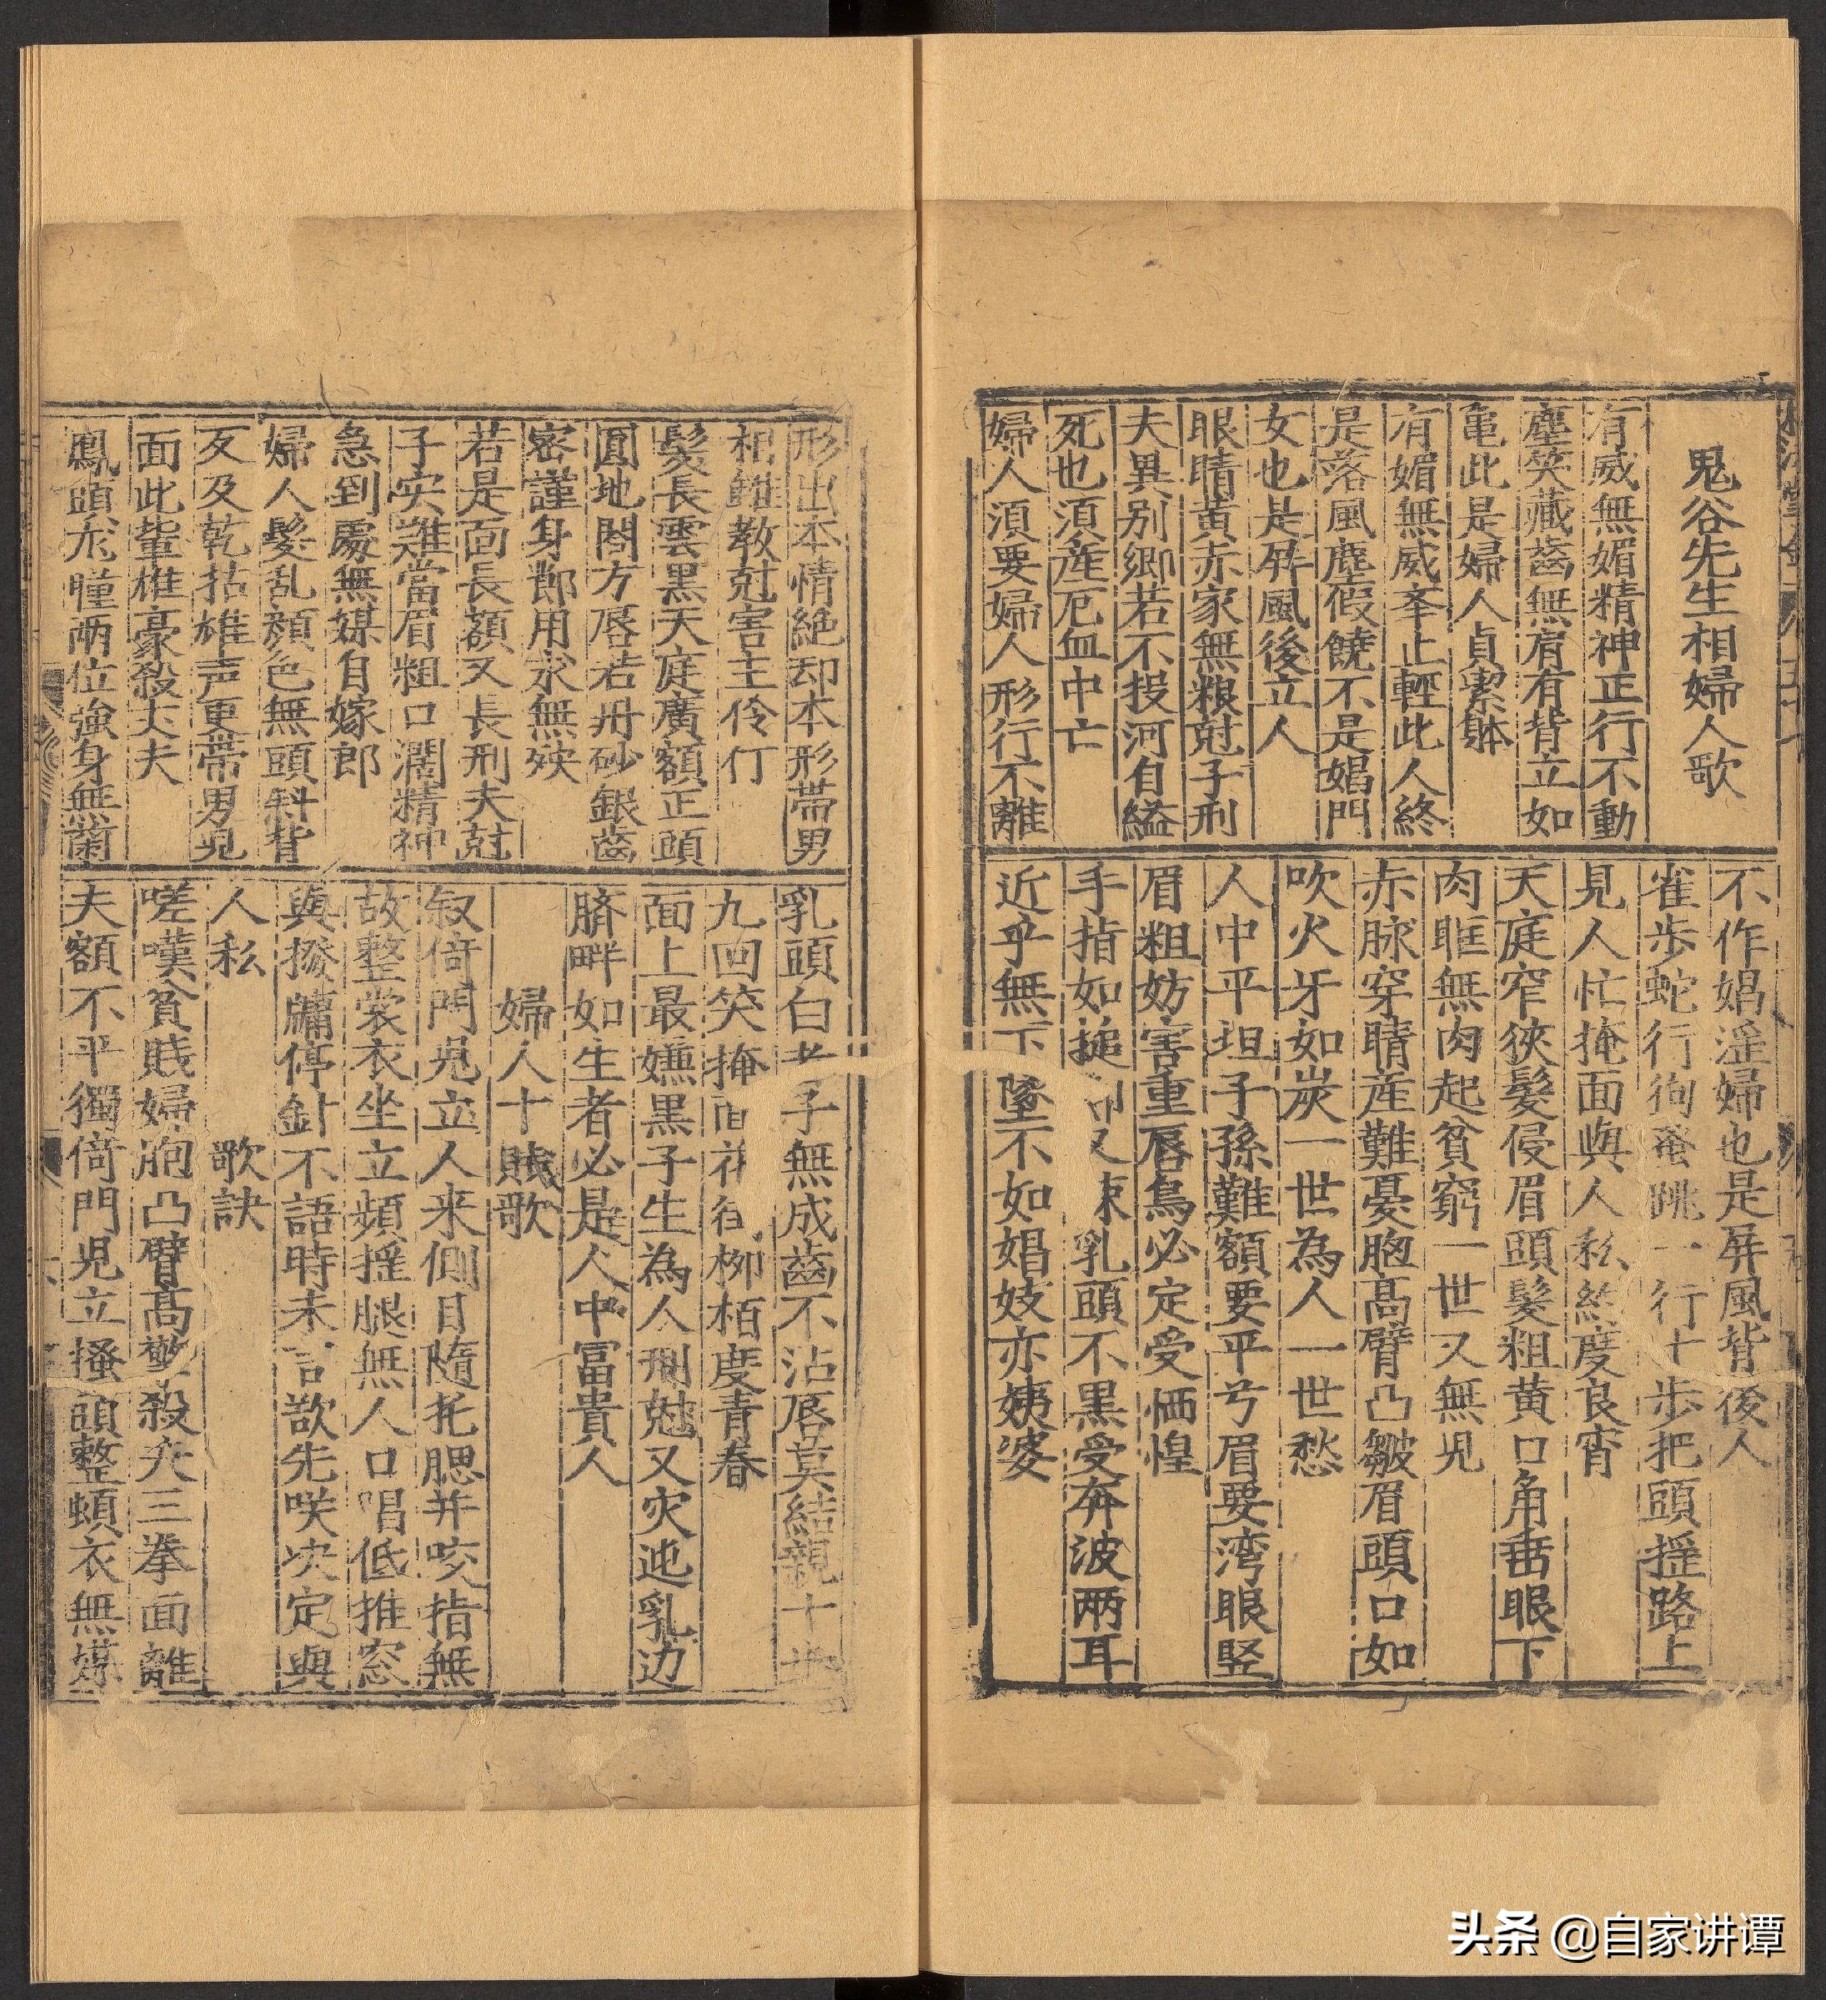 鬼谷先生相婦人歌
有威無媚精神正行不動
塵笑藏齒無肩有背立如
龜此是婦人貞潔躰
有媚無威夆止輕此人終
是落風塵假饒不是娼門
女也是屏風後立人
眼睛黄赤家無粮尅子刑
夫異别鄉若不投河自縊
死也湏産厄血中亡
婦人湏要婦人形行不離
不作娼淫婦也是屏風背後人
雀步蛇行狗蚤跳一行十步把頭摇路上
見人忙掩面與人私約度良宵
天庭窄狹髮侵眉頭髮粗黄口角垂眼下
肉眶無肉起貧窮一世又無児
赤脉穿睛産難憂胸高臂凸皺眉頭口如
吹火牙如炭一世為人一世愁
人中平坦子孫難額要平兮眉要湾眼竪
眉粗妨害重唇烏必定受恓惶
手指如搥又 乳頭不黒受奔波兩耳
近乎無下墜不如娼妓亦姨婆
形出本情絶却本形帯男
相雖教尅害主伶仃
髮長雲黒天庭廣額正頭
圓地閣方唇若丹砂銀齒
密謹身鄁用求無殃
若是面長額又長刑夫尅
子实難當眉粗口濶精神
急到處無媒自嫁郎
婦人髮乱顔色無頭斜背
反及乾拈雄声更帯男児
面此輩雄豪殺丈夫
鳳頭 腫兩位強身無蘭
乳頭白 子無成齒不沾唇莫結親十
九回笑掩面 栁栢度青春
面上最嫌黒子生為人刑尅又灾迍乳边
臍畔如生者必是人中冨貴人
婦人十賎歌
叙倚門児立人来側目随托腮并咬指無
故整裳衣坐立頻摇腿無人口唱低推窓
與撥牖停針不語時未言欲先咲决定與
人私
歌訣
嗟嘆貧賎婦胞凸臂高 殺夫三拳面離
夫額不平獨倚門児立搔頭整頓衣無媒
头条 @自家讲谭